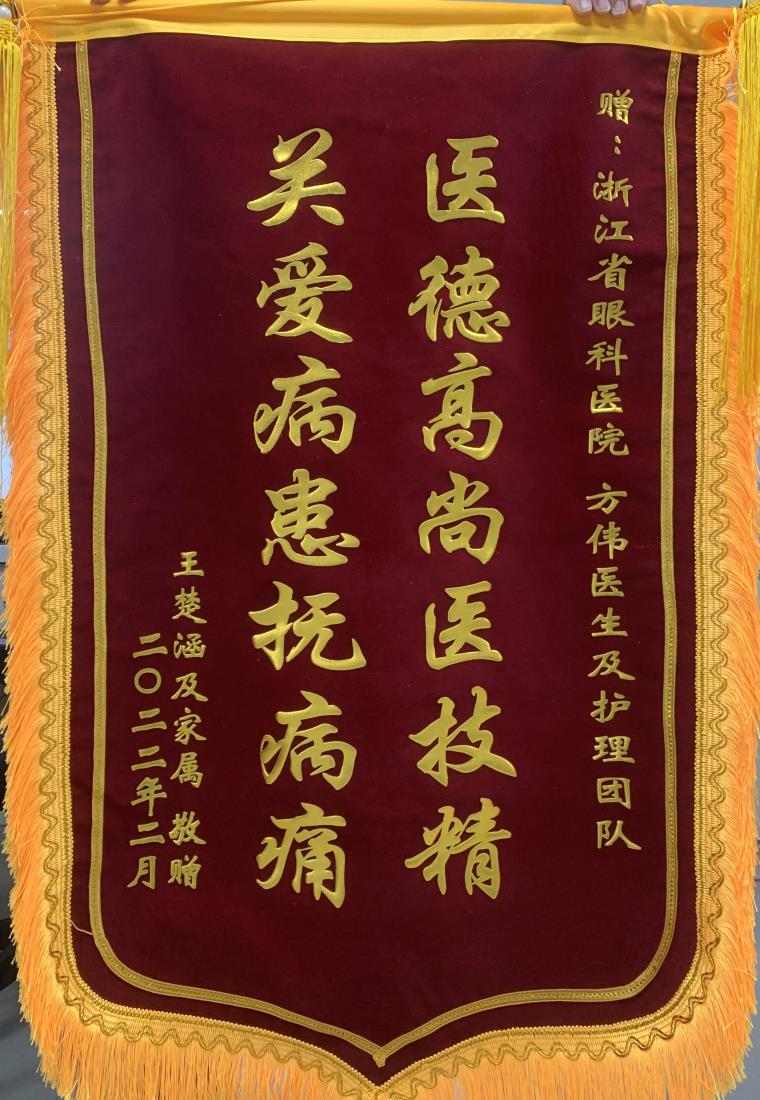 赠：浙江省眼科医院 方伟医生及护理团队
医德高尚医技精
关爱病患抚病痛
王楚涵及家属 敬赠
二〇二二年二月